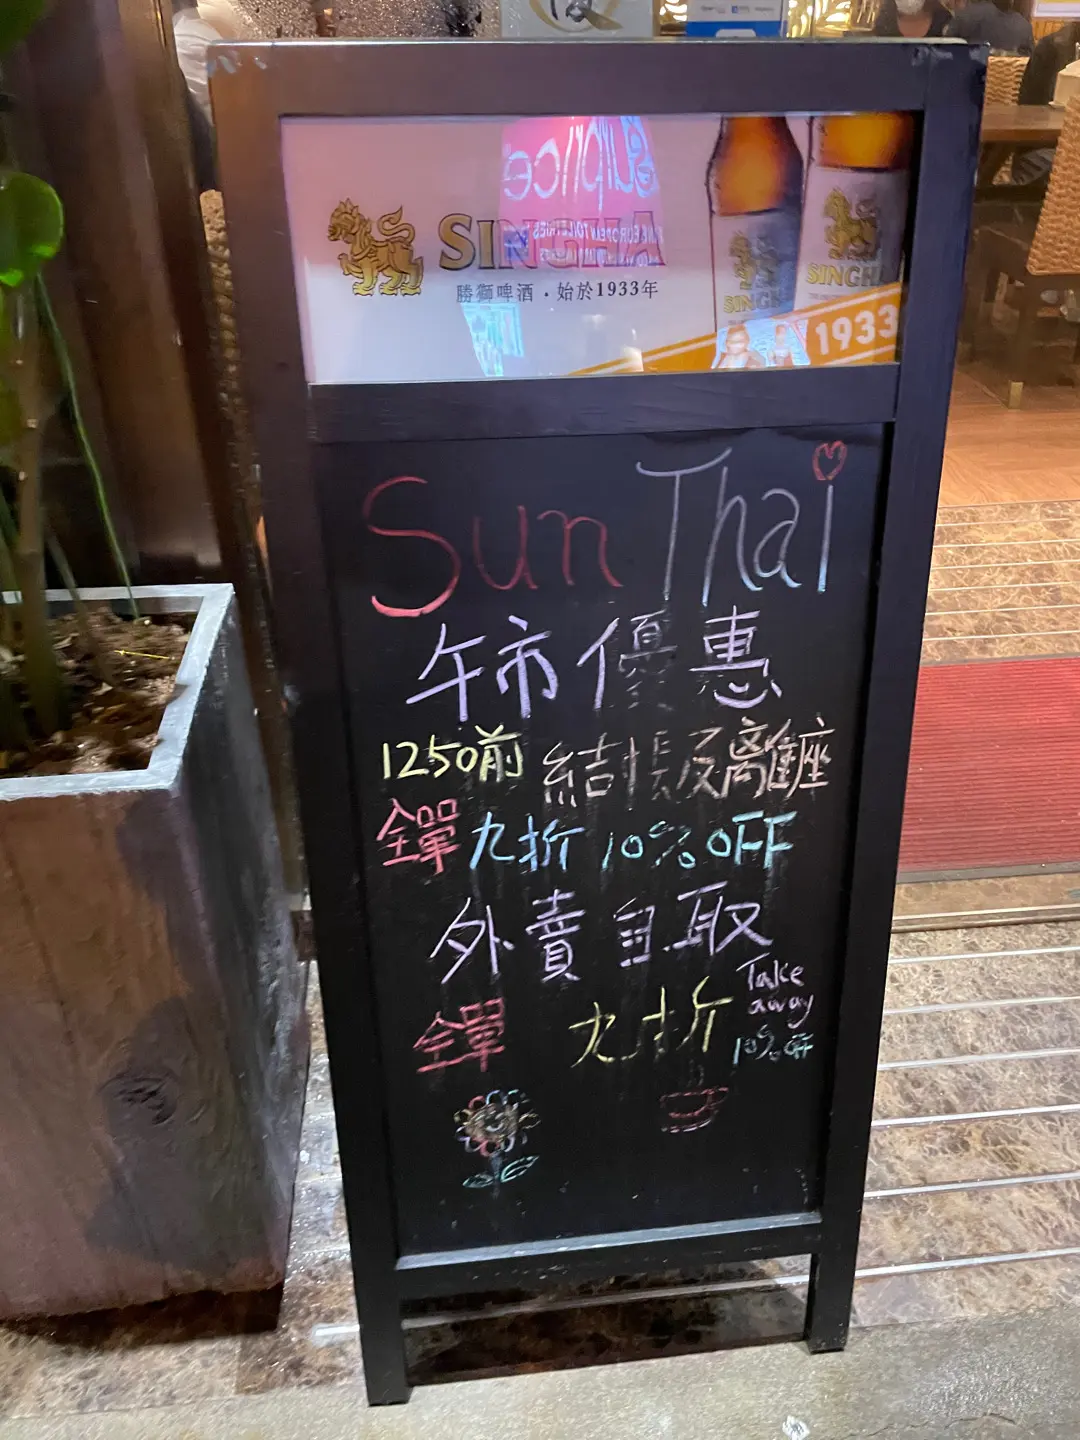 SINGHA
勝獅啤酒・始於1933年
SINGHA
SINGHA
1933
Sun Thai
午市優惠
1250前 結帳及離座
全單九折 10% OFF
外賣自取
全單 九折
Take
away
10% OFF